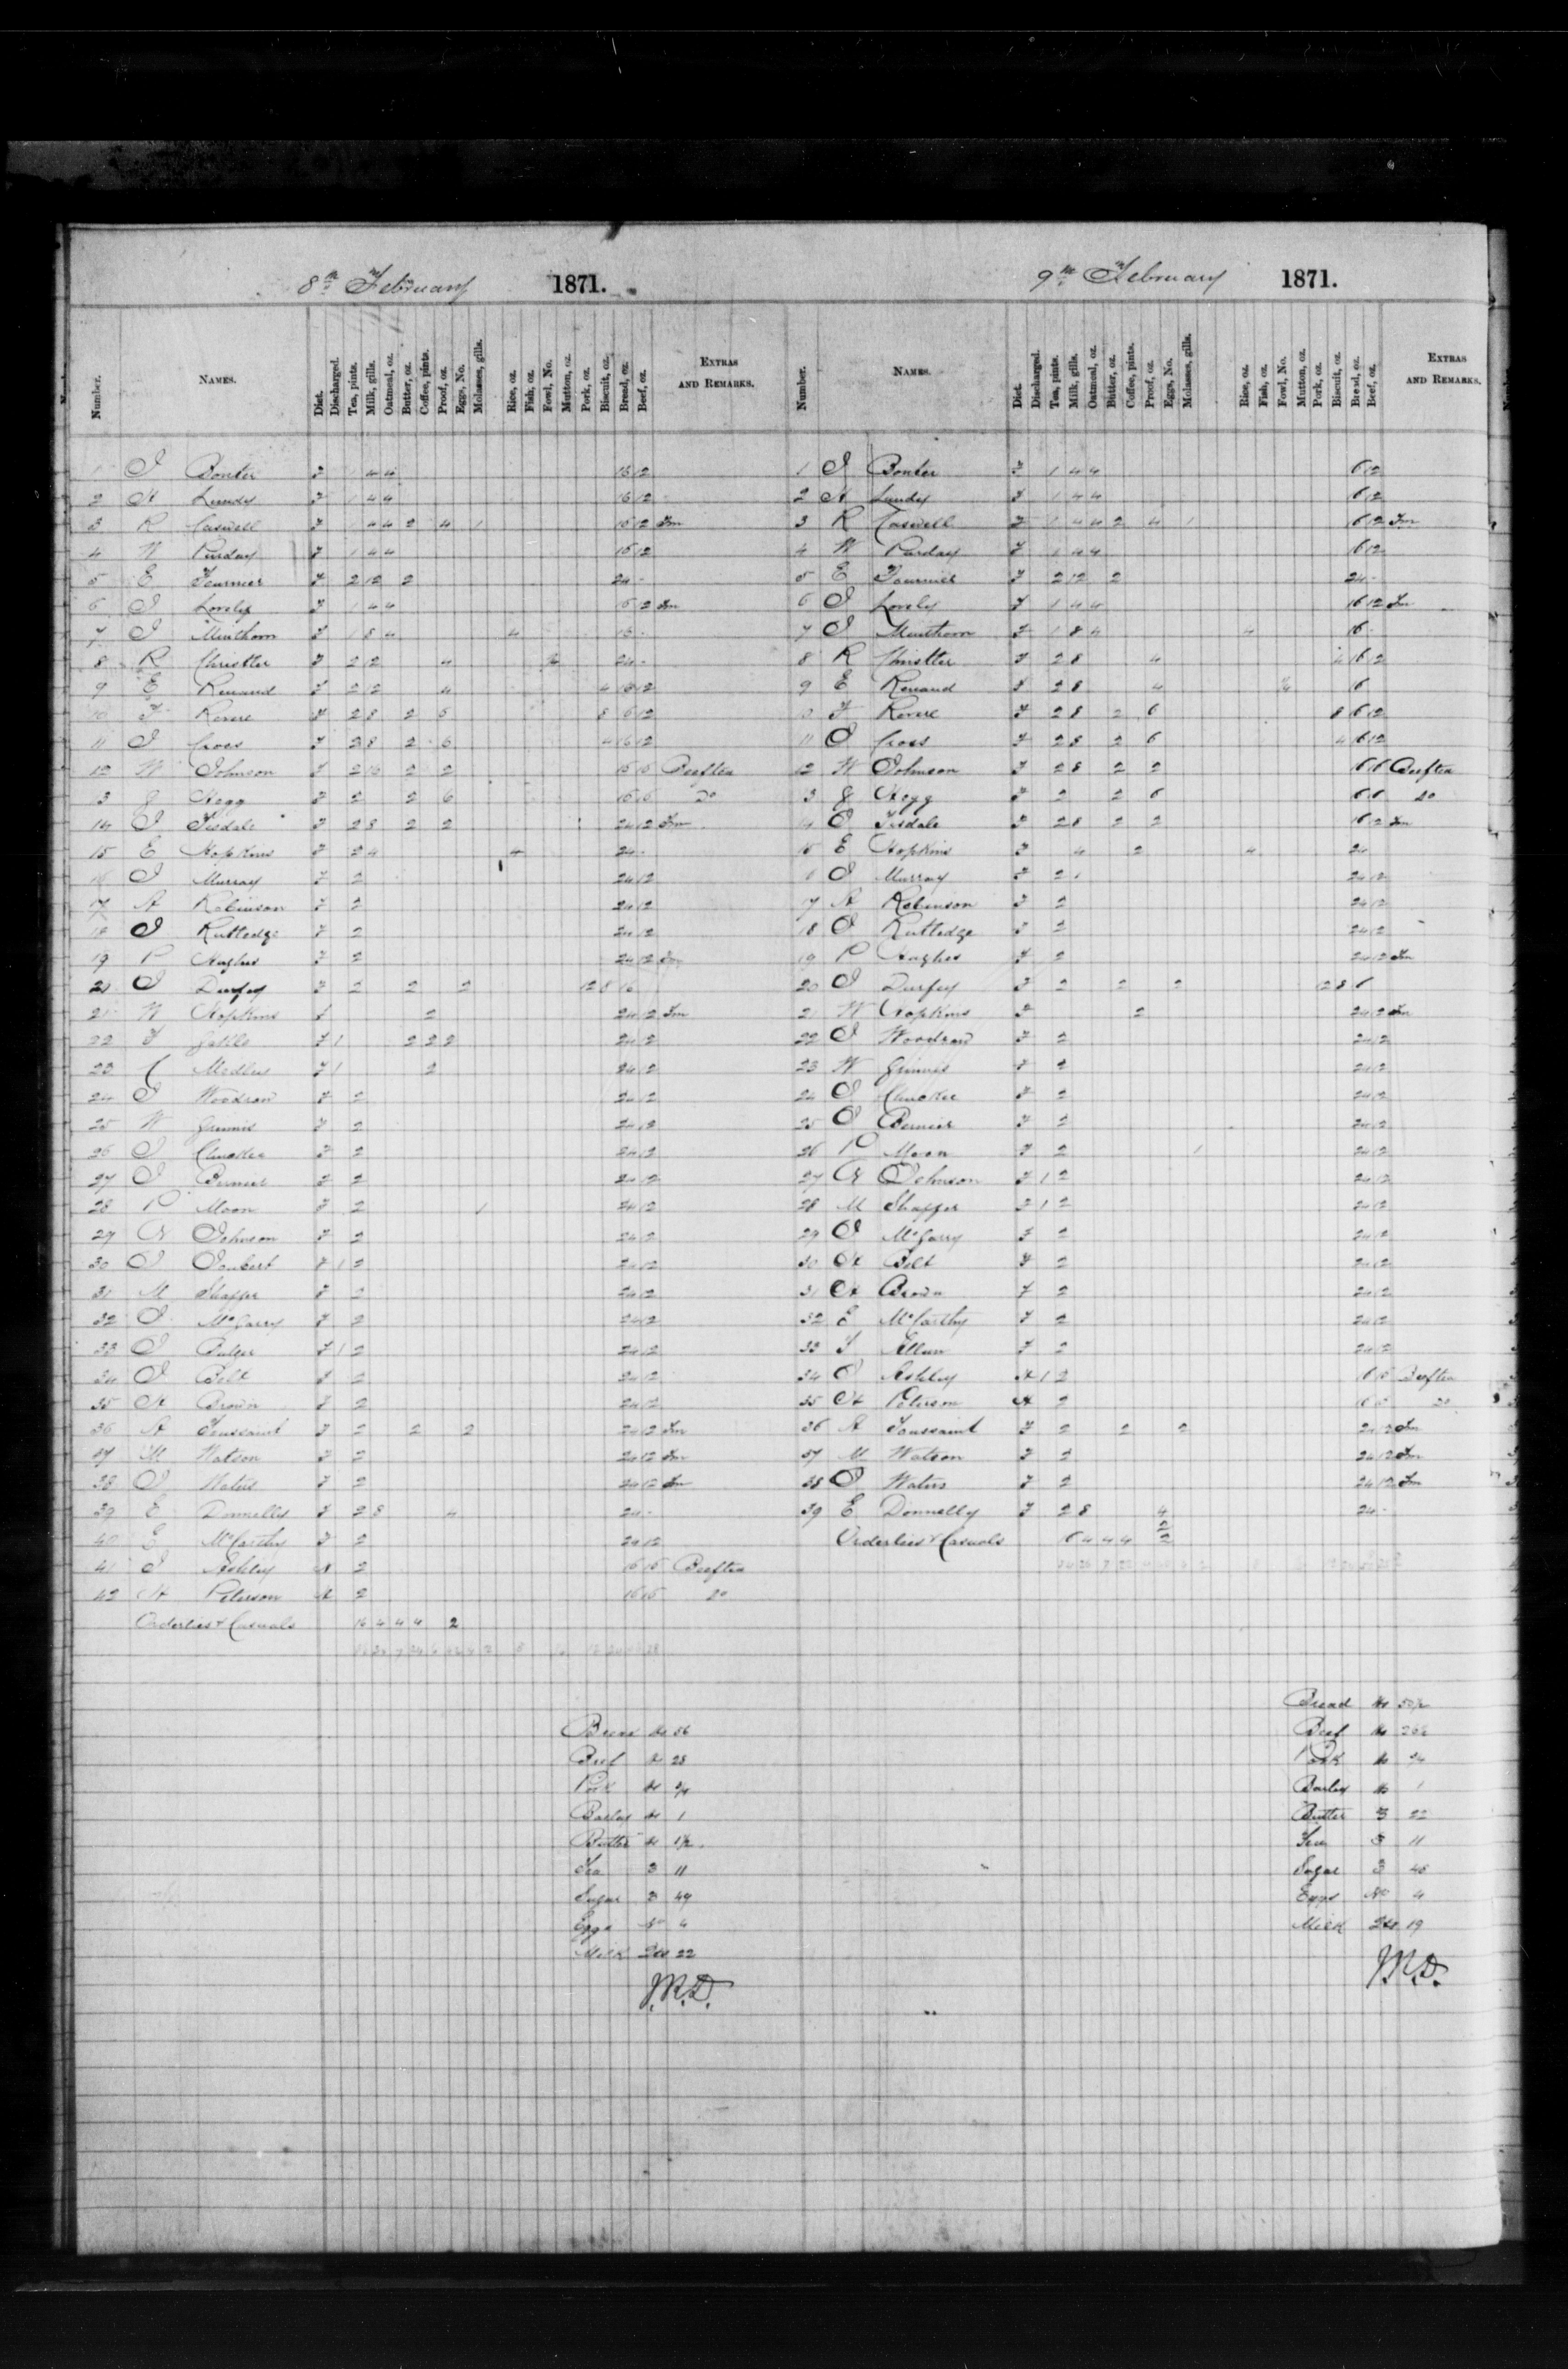 8th February 1871.
Number. NAMES. Diet. Discharged. Tea, pints. Milk, gills. Oatmeal, oz. Butter, oz. Coffee, pints. Proof, oz. Eggs, No. Molasses, gills. Rice, oz. Fish, oz. Fowl, No. Mutton, oz. Pork, oz. Biscuit, oz. Bread, oz. Beef, oz. EXTRAS AND REMARKS.
1 J Bonter 1 4 4 16 12
2 H Lundy 1 4 4 16 12
3 R Caswell 1 4 4 2 4 1 16 12
4 W Purday 1 4 4 16 12
5 E Fournier 2 12 2 24 -
6 J Lovely 1 4 4 16 12
7 J Minthorn 1 8 4 4 16 -
8 R Christler 2 12 4 24 -
9 E Renaud 2 12 4 4 16 12
10 F Revere 2 8 2 6 8 16 12
11 J Cross 2 8 2 6 4 16 12
12 W Johnson 2 16 2 2 16 16 Beeftea
13 J Hegg 2 2 6 16 16 do
14 J Tisdale 2 8 2 2 24 12
15 E Hopkins 2 4 4 24 -
16 J Murray 2 24 12
17 A Robinson 2 24 12
18 J Ruttedge 2 24 12
19 P Hughes 2 24 12
20 J Durfey 2 2 2 12 8 16
21 W Hopkins 2 24 12
22 1 2 2 2 24 12
23 C Medley 1 2 24 12
24 J Woodrow 2 24 12
25 W Grinnis 2 24 12
26 J 2 24 12
27 J Bernier 2 24 12
28 P Moon 2 1 24 12
29 Johnson 2 24 12
30 J Joubert 1 2 24 12
31 M Shaffer 2 24 12
32 J McGarry 2 24 12
33 J Bulger 1 2 24 12
34 Belt 2 24 12
35 H Brown 2 24 12
36 A Toussaint 2 2 2 24 12
37 M Watson 2 24 12
38 J Waters 2 24 12
39 E Donnelly 2 8 4 24 -
40 E McCarthy 2 24 12
41 J Ashley 2 16 16 Beeftea
42 H Peterson 2 16 16 do
Orderlies & Casuals 16 4 4 4 2
Bread lbs 56
Beef lbs 28
Pork lbs 3/4
Barley lbs 1
Butter lbs 1 1/2
Tea 11
Sugar 49
Eggs No 4
Milk 22
J.R.D.
9th February 1871.
Number. NAMES. Diet. Discharged. Tea, pints. Milk, gills. Oatmeal, oz. Butter, oz. Coffee, pints. Proof, oz. Eggs, No. Molasses, gills. Rice, oz. Fish, oz. Fowl, No. Mutton, oz. Pork, oz. Biscuit, oz. Bread, oz. Beef, oz. EXTRAS AND REMARKS.
1 J Bonter 1 4 4 16 12
2 H Lundy 1 4 4 16 12
3 R Caswell 1 4 4 2 4 1 16 12
4 W Purday 1 4 4 16 12
5 E Fournier 2 12 2 24 -
6 J Lovely 1 4 4 16 12
7 J Minthorn 1 8 4 4 16 -
8 R Christler 2 8 4 4 16 12
9 E Renaud 2 8 4 16
10 F Revere 2 8 2 6 8 16 12
11 J Cross 2 8 2 6 4 16 12
12 W Johnson 2 8 2 2 16 16 Beeftea
13 J Hegg 2 2 6 16 16 do
14 J Tisdale 2 8 2 2 16 12
15 E Hopkins 4 2 4 24
16 J Murray 2 24 12
17 A Robinson 2 24 12
18 J Ruttedge 2 24 12
19 P Hughes 2 24 12
20 J Durfey 2 2 2 12 8 16
21 W Hopkins 2 24 12
22 J Woodrow 2 24 12
23 W Grinnis 2 24 12
24 J 2 24 12
25 J Bernier 2 24 12
26 P Moon 2 1 24 12
27 Johnson 1 2 24 12
28 M Shaffer 1 2 24 12
29 J McGarry 2 24 12
30 H Belt 2 24 12
31 H Brown 2 24 12
32 E McCarthy 2 24 12
33 Allan 2 24 12
34 J Ashley 1 2 16 16 Beeftea
35 H Peterson 2 16 16 do
36 A Toussaint 2 2 2 24 12
37 M Watson 2 24 12
38 J Waters 2 24 12
39 E Donnelly 2 8 4 24 -
Orderlies & Casuals 16 4 4 4
Bread lbs 50 1/2
Beef lbs 26
Pork lbs 3/4
Barley lbs 1
Butter 22
Tea 11
Sugar 48
Eggs No 4
Milk 19
J.R.D.